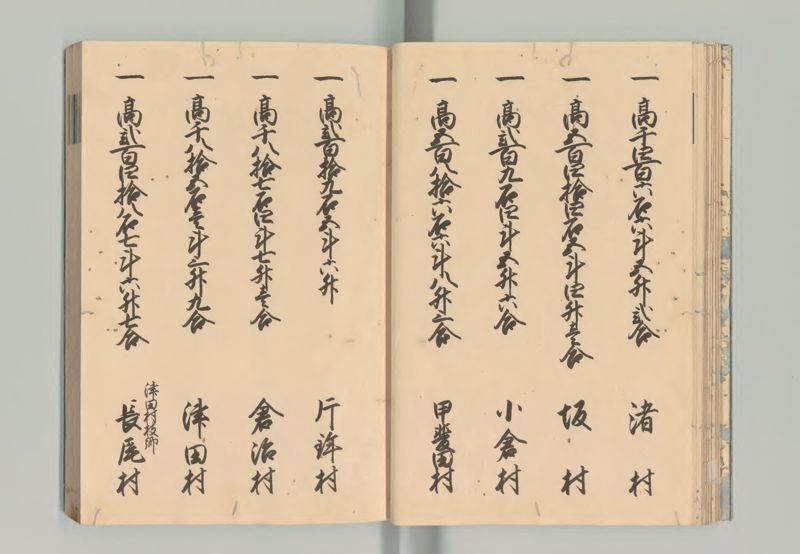 一 高千四百六石六斗五升弐合 渚村
一 高五百四拾四石五斗四升壱合 坂村
一 高弐百九石四斗五升六合 小倉村
一 高五百八拾六石六斗八升三合 甲斐田村
一 高弐百拾九石五斗六升 片鉾村
一 高千八拾七石四斗七升壱合 倉治村
一 高千八拾五石壱斗三升九合 津田村
津田村枝郷
一 高弐百四拾八石七斗六升七合 長尾村